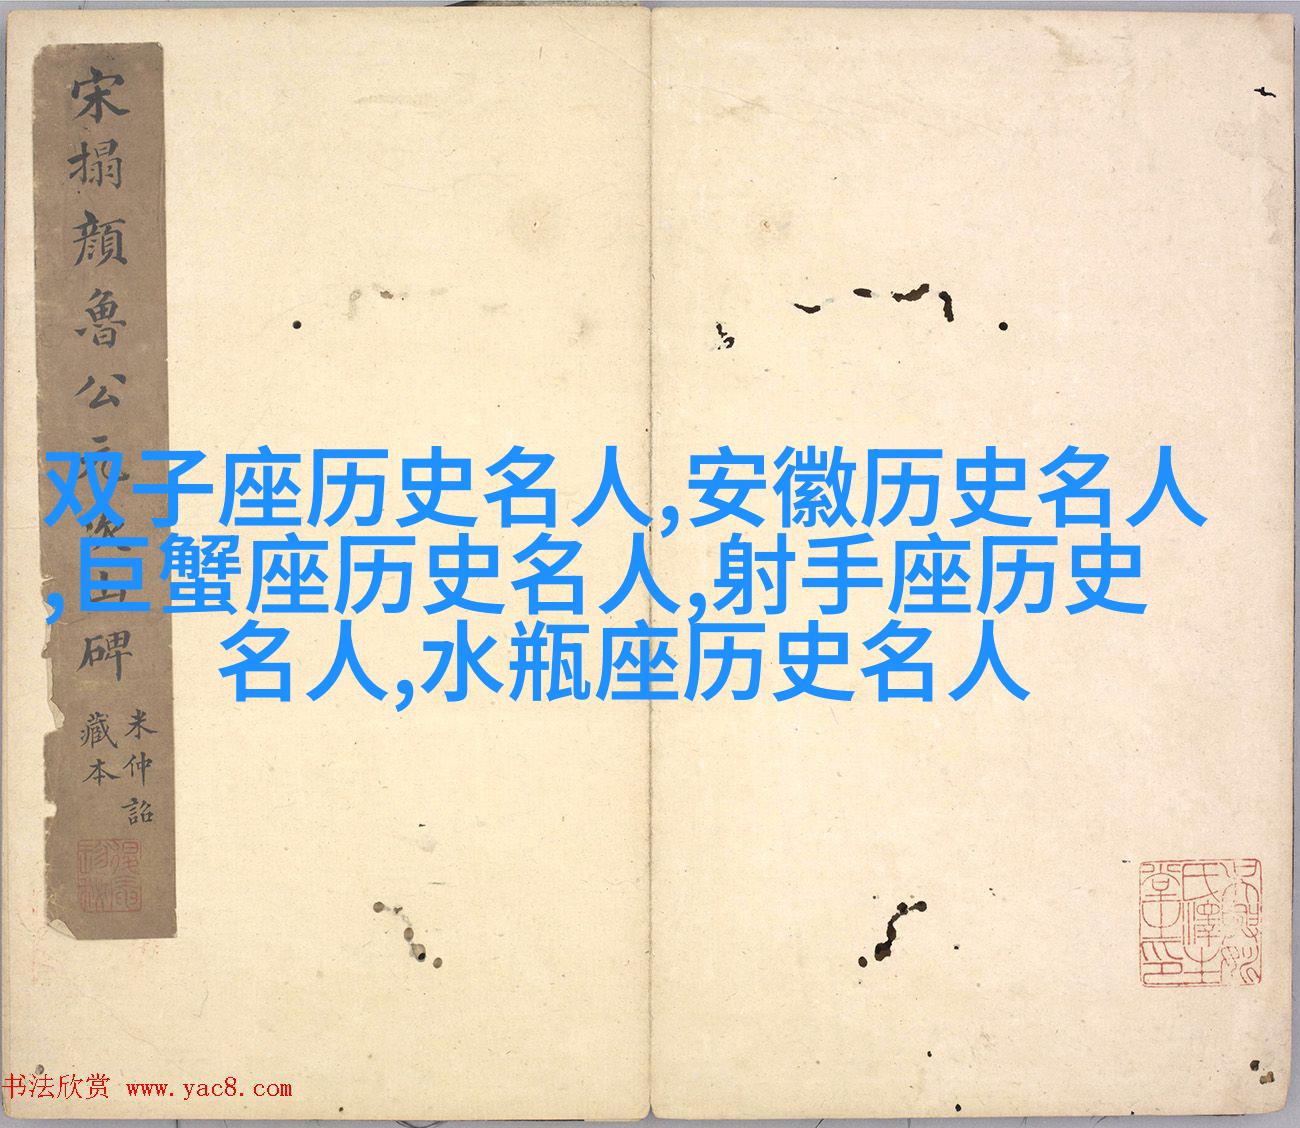 宋搨顏魯公元次山碑
米仲詔
藏本
双子座历史名人,安徽历史名人
,巨蟹座历史名人,射手座历史
名人,水瓶座历史名人
书法欣赏 www.yac8.com